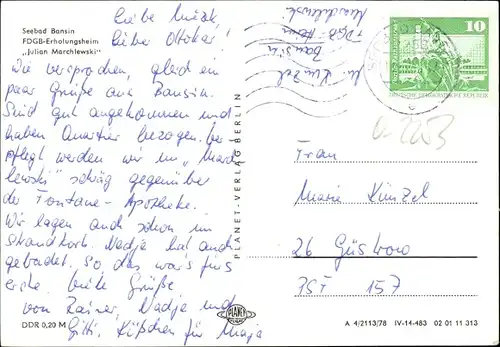 Seebad Bansin
FDGB-Erholungsheim
„Julian Marchlewski"
Liebe
Liebe Ottokar!
Wie versprochen, gleich ein
paar Grüße aus Bansin.
Sind gut angekommen und
haben Quartier bezogen. Ver-
pflegt werden wir im „March-
lewski" schräg gegenüber
der Fontane-Apotheke.
Wir lagen auch schon im
Strandkorb. Nadja hat auch
gebadet. So das wär's fürs
erste. Viele Grüße
von Rainer, Nadja und
Gitti. Küßchen für Maja
DDR 0,20 M
M. Künzel
Bansin
FDGB-Heim
Marchlewski
PLANET-VERLAG BERLIN
PLANET
10
DEUTSCHE DEMOKRATISCHE REPUBLIK
Frau
Marie Künzel
26 Güstrow
PST 157
A 4/2113/78 IV-14-483 02 01 11 313